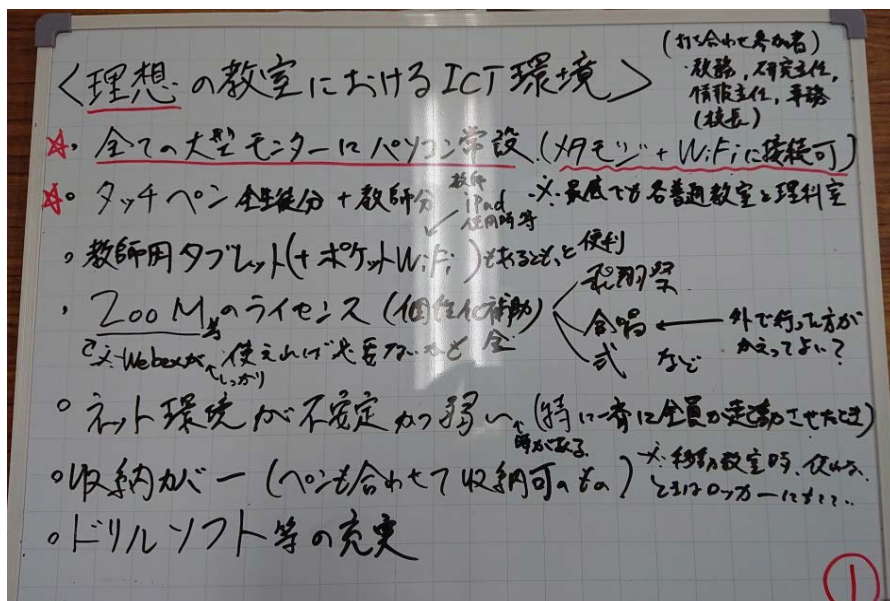 〈理想の教室におけるICT環境〉
(打ち合わせ参加者)
・教務,研究主任,
情報主任,事務
(校長)
☆・全ての大型モニターにパソコン常設(メタモジ+WiFiに接続可)
※最低でも各普通教室と理科室
☆。タッチペン全生徒分+教師分
教師
iPad
使用時等
。教師用タブレット(+ポケットWiFi)もあるともっと便利
・ZOOM等のライセンス(個性化補助金)
祭
合唱 ← 外で行った方が
かえってよい?
式 など
※Webexがしっかり使えれば必要ないかも
。ネット環境が不安定かつ弱い時がある(特に一斉に全員が起動させたとき)
。収納カバー(ペンも合わせて収納可のもの)
※移動教室時、使わない
ときはロッカーに
。ドリルソフト等の充実
①